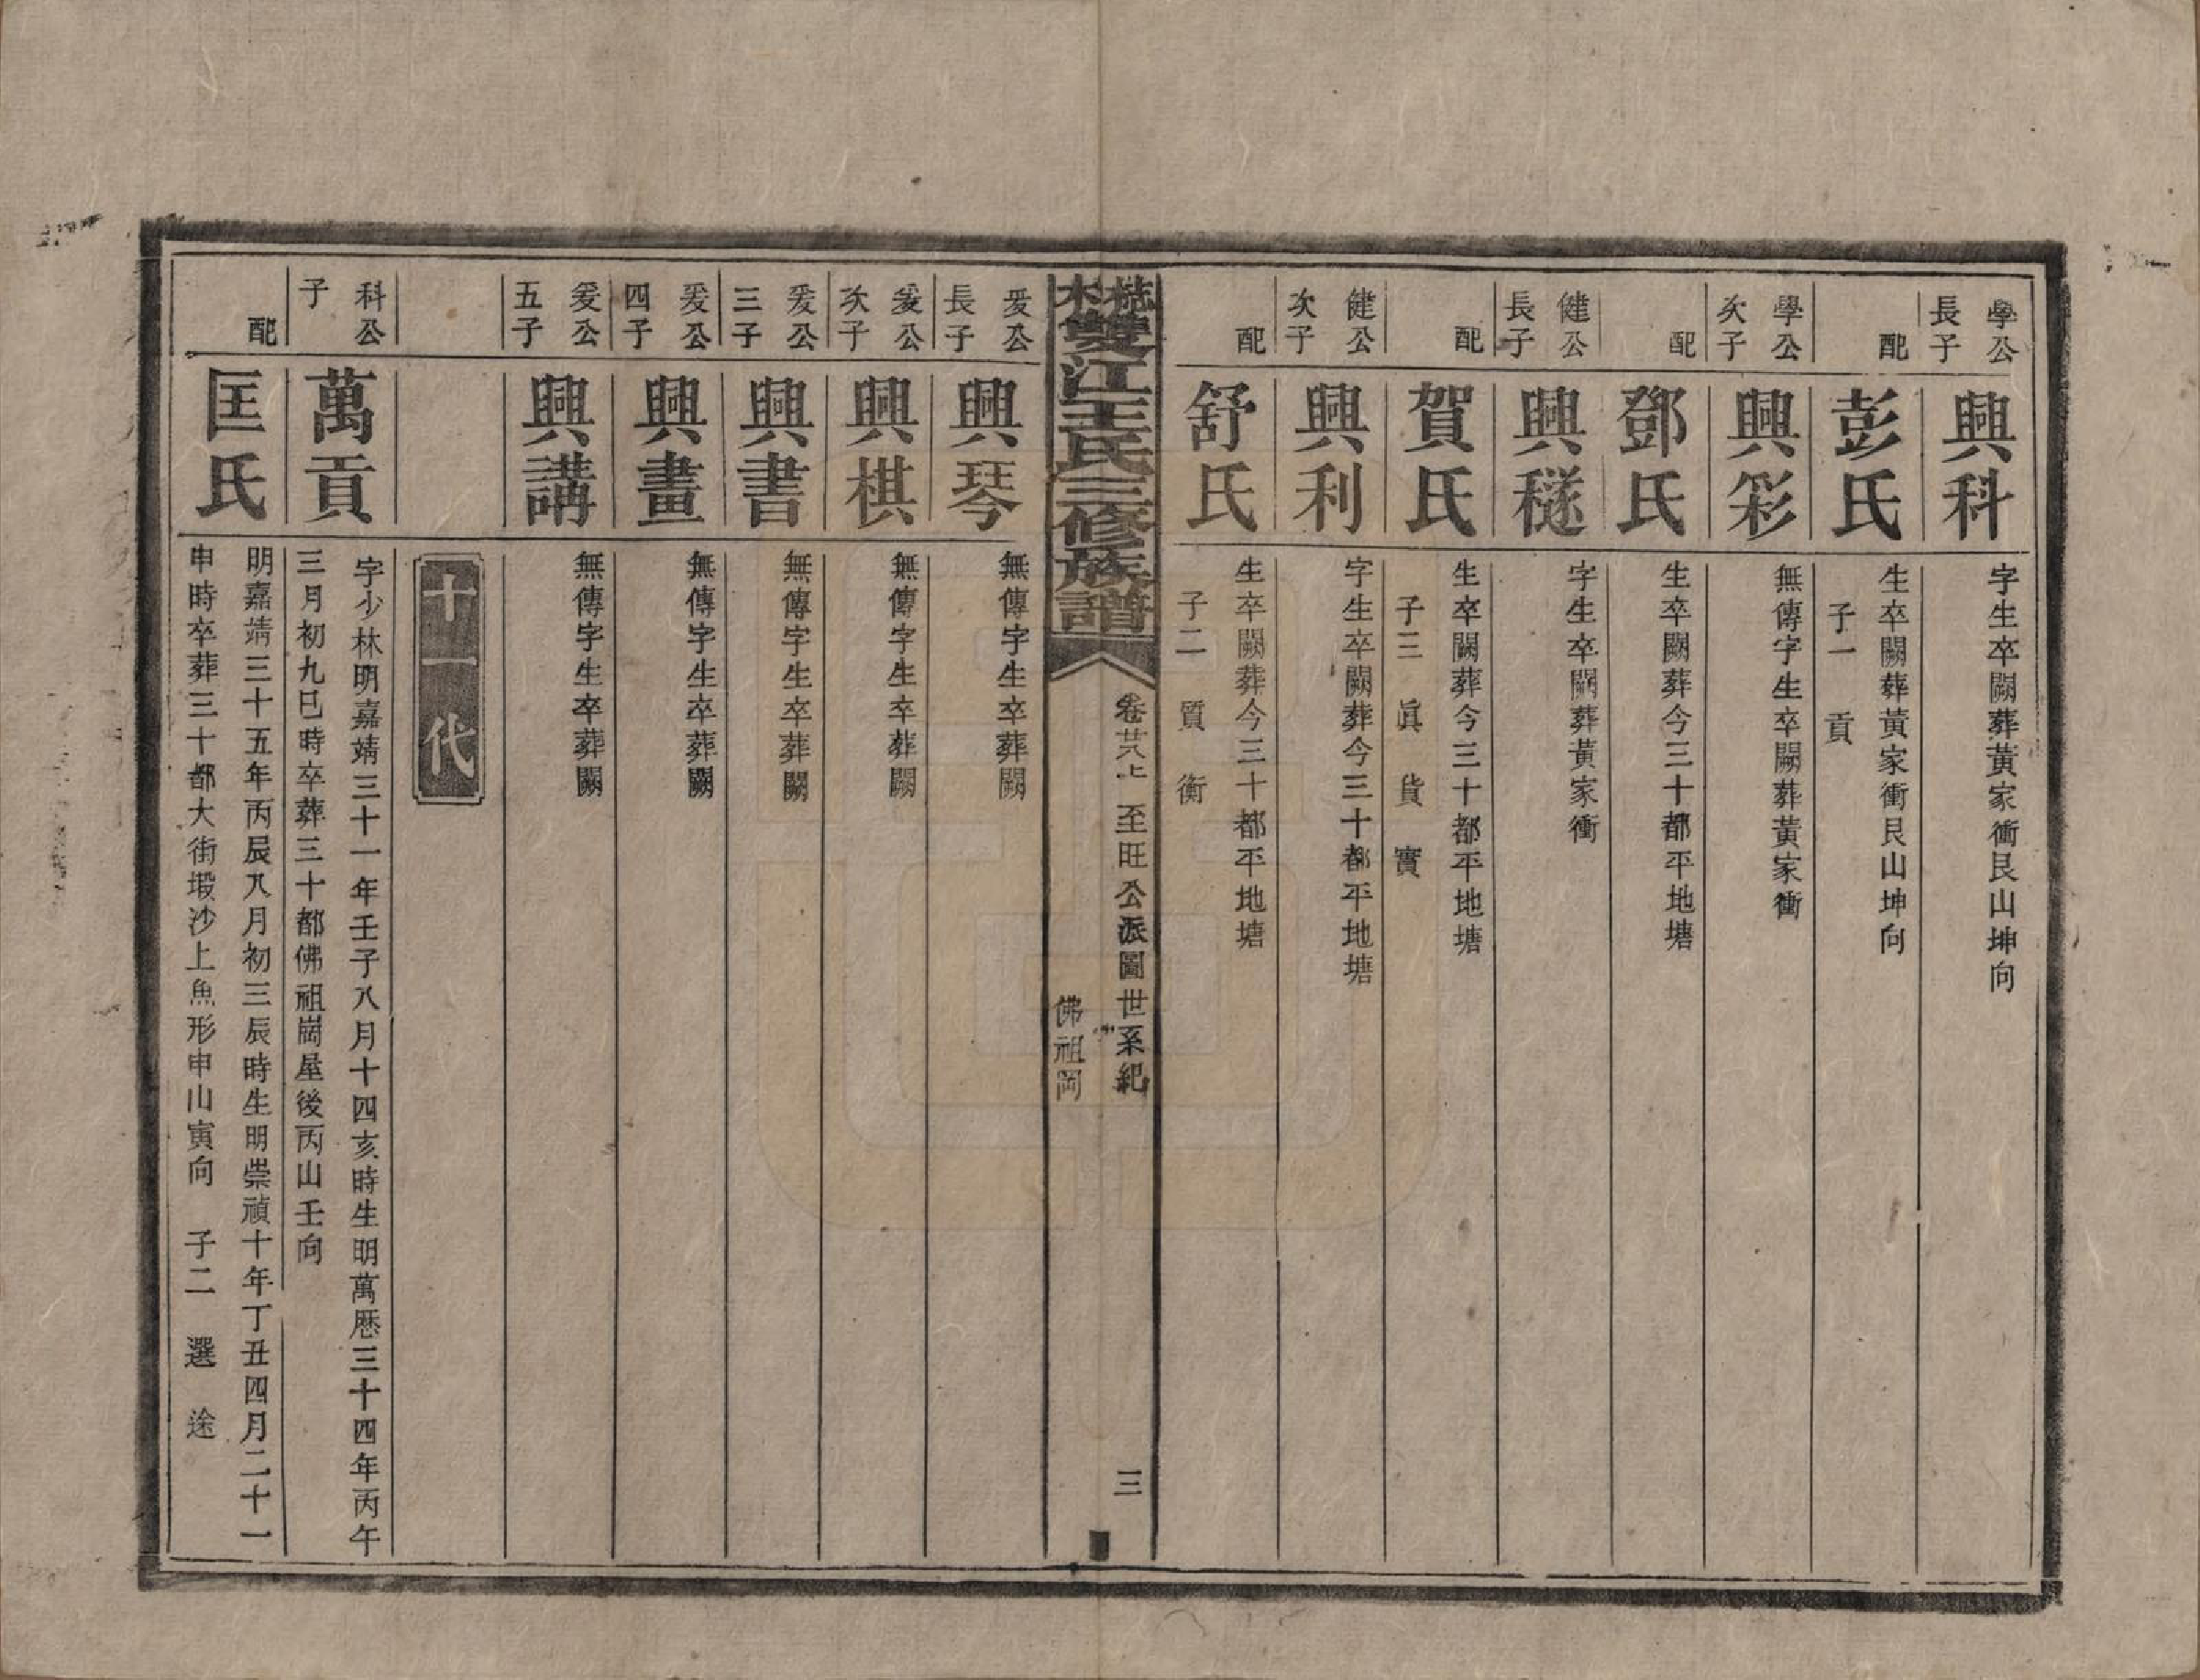 學公長子
興科
字生卒闕葬黃家衝艮山坤向
配
彭氏
生卒闕葬黃家衝艮山坤向
子一　貢
學公次子
興彩
無傳字生卒闕葬黃家衝
配
鄧氏
生卒闕葬今三十都平地塘
健公長子
興穟
字生卒闕葬黃家衝
配
賀氏
生卒闕葬今三十都平地塘
子三　眞　貨　實
健公次子
興利
字生卒闕葬今三十都平地塘
配
舒氏
生卒闕葬今三十都平地塘
子二　質　衡
雙江王氏三修族譜
卷廿八上　至旺公派圖世系紀
佛祖岡
三
爰公長子
興琴
無傳字生卒葬闕
爰公次子
興棋
無傳字生卒葬闕
爰公三子
興書
無傳字生卒葬闕
爰公四子
興畫
無傳字生卒葬闕
爰公五子
興講
無傳字生卒葬闕
十一代
科公子
萬貢
字少林明嘉靖三十一年壬子八月十四亥時生明萬歷三十四年丙午
三月初九巳時卒葬三十都佛祖崗屋後丙山壬向
配
匡氏
明嘉靖三十五年丙辰八月初三辰時生明崇禎十年丁丑四月二十一
申時卒葬三十都大街塅沙上魚形申山寅向　子二　選　途